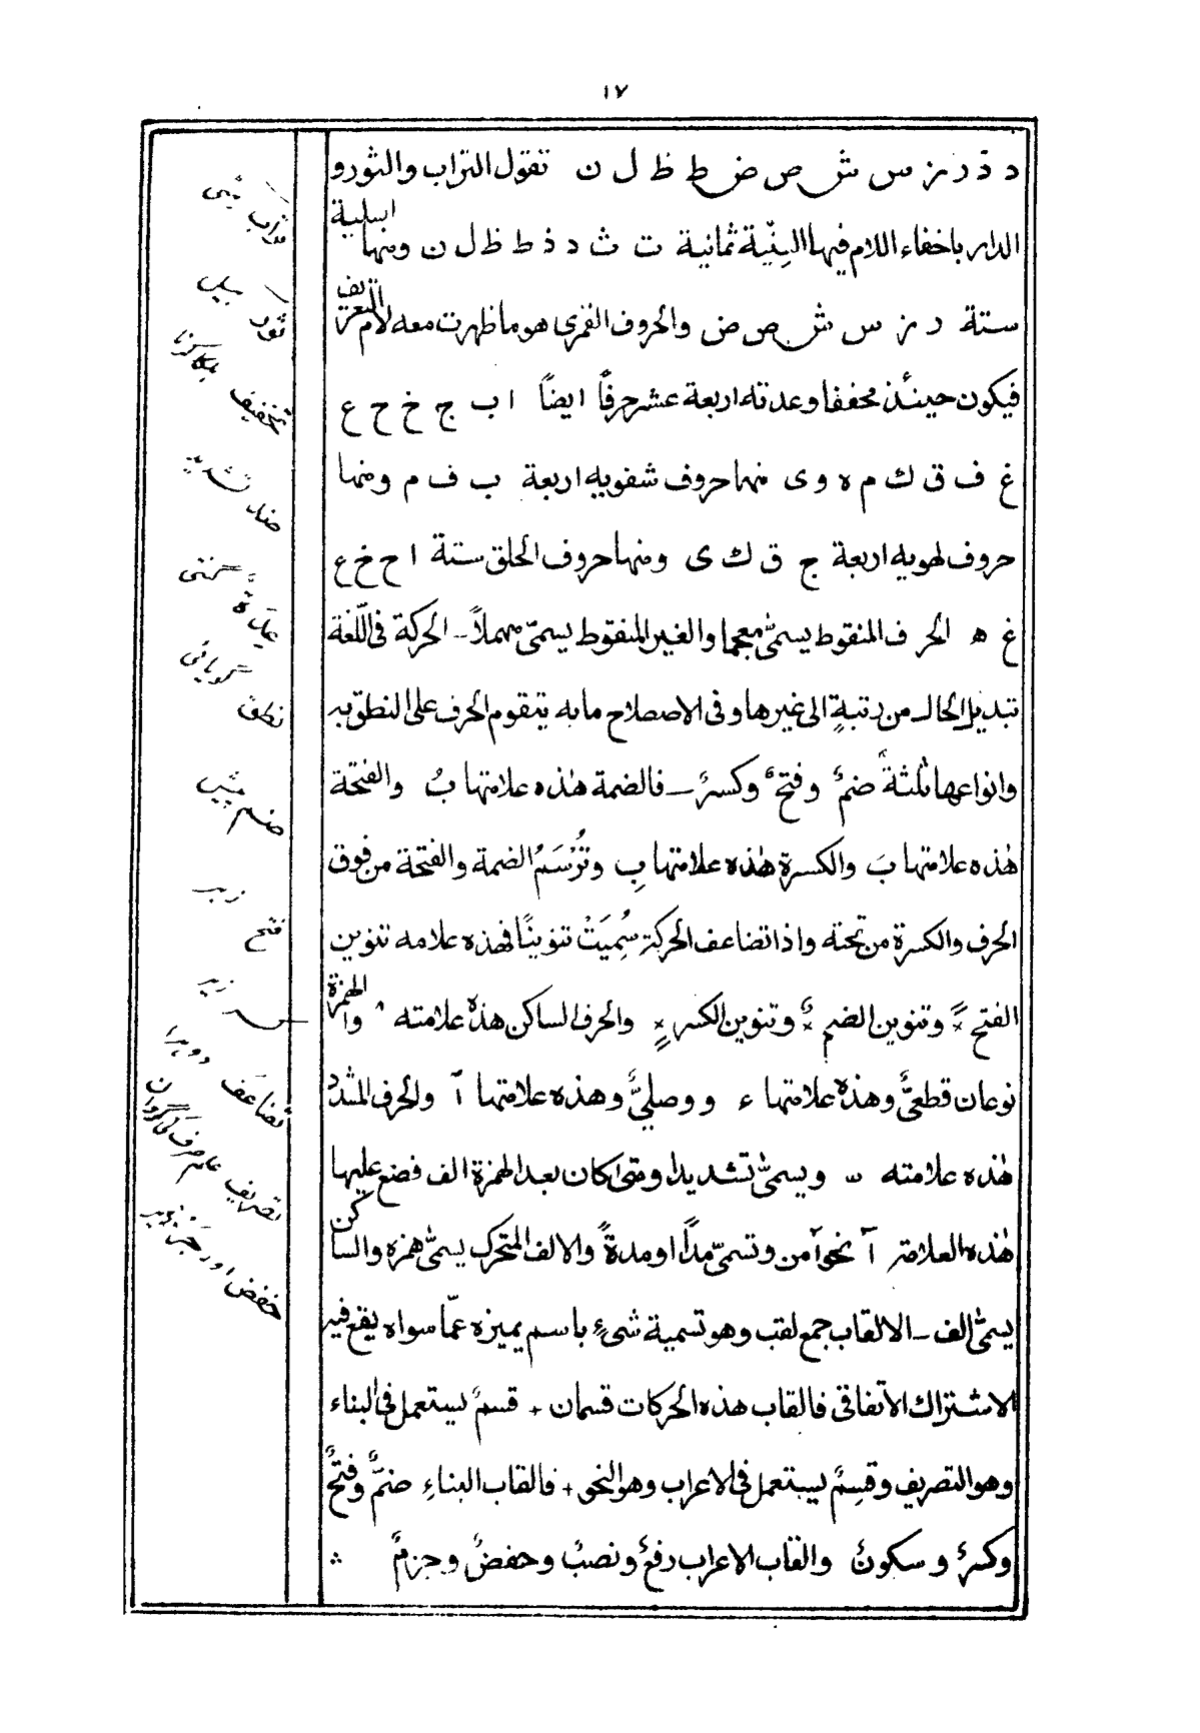 ١٧
د ذ ر ز س ش ص ض ط ظ ل ن تقول التراب والثور و
الدار باخفاء اللام فيها اللِثَيّة ثمانية ت ث د ذ ط ظ ل ن ومنها اسلية
ستة ر ز س ش ص ض والحروف القمرى هو ما ظهرت معه لام التعريف
فيكون حينئذ مخففا وعدته اربعة عشر حرفًا ايضًا ا ب ج خ ح ع
غ ف ق ك م ه و ى منها حروف شفويه اربعة ب ف م ومنها
حروف لهويه اربعة ج ق ك ى ومنها حروف الحلق ستة ا ح خ ع
غ ه الحرف المنقوط يسمىّ معجما والغير المنقوط يسمىّ مهملاً ـ الحركة فى اللّغة
تبديل الحال من رتبةٍ الى غيرها وفى الاصصلاح ما به يتقوم الحرف على النطق به
وانواعها ثلثة ضمٌ وفتحٌ وكسرٌ ـ فالضمة هٰذه علامتها بُ والفتحة
هٰذه علامتها بَ والكسرة هٰذه علامتها بِ وتُرْسَمُ الضمة والفتحة من فوق
الحرف والكسرة من تحته واذا تضاعف الحركة سُمِيَتْ تنوينًا فهذه علامه تنوين
الفتح ×ً وتنوين الضم ×ٌ وتنوين الكسر ×ٍ والحرف الساكن هذه علامته ^ والهمزة
نوعان قطعىٌّ وهذه علامتها ء ووصلىٌّ وهذه علامتها آ والحرف المشدد
هٰذه علامته ّ ويسمىّٰ تشديدا ومتى كان بعد الهمزة الف فضع عليها
هٰذه العلامة آ نحو آمن وتسمىّ مدًّا او مدةً والالف المتحرك يسمىّٰ همزه والساكن
يسمىّٰ الف ـ الالقاب جمع لقب وهو تسمية شىءٍ باسم يميزه عمّا سواه يقع فيه
الاشتراك الاتفاقى فالقاب هذه الحركات قسمان + قسمٌ يستعمل فى البناء
وهو التصريف وقسِمٌ يستعمل فى الاعراب وهو النحو + فالقاب البناءِ ضمٌّ وفتحٌ
وكسرٌ وسكونٌ والقاب الاعراب رفعٌ ونصبٌ وخفضٌ وجزمٌ
تراب مٹی
ثور بیل
تخفیف ہلکا کرنا
ضد تشدید
عِدّة گنتی
نطق گویائی
ضم پیش
فتح زبر
کسر زیر
تضاعَف دوہرا
تصریف علم صرف گردان
خفض اور جر زیر